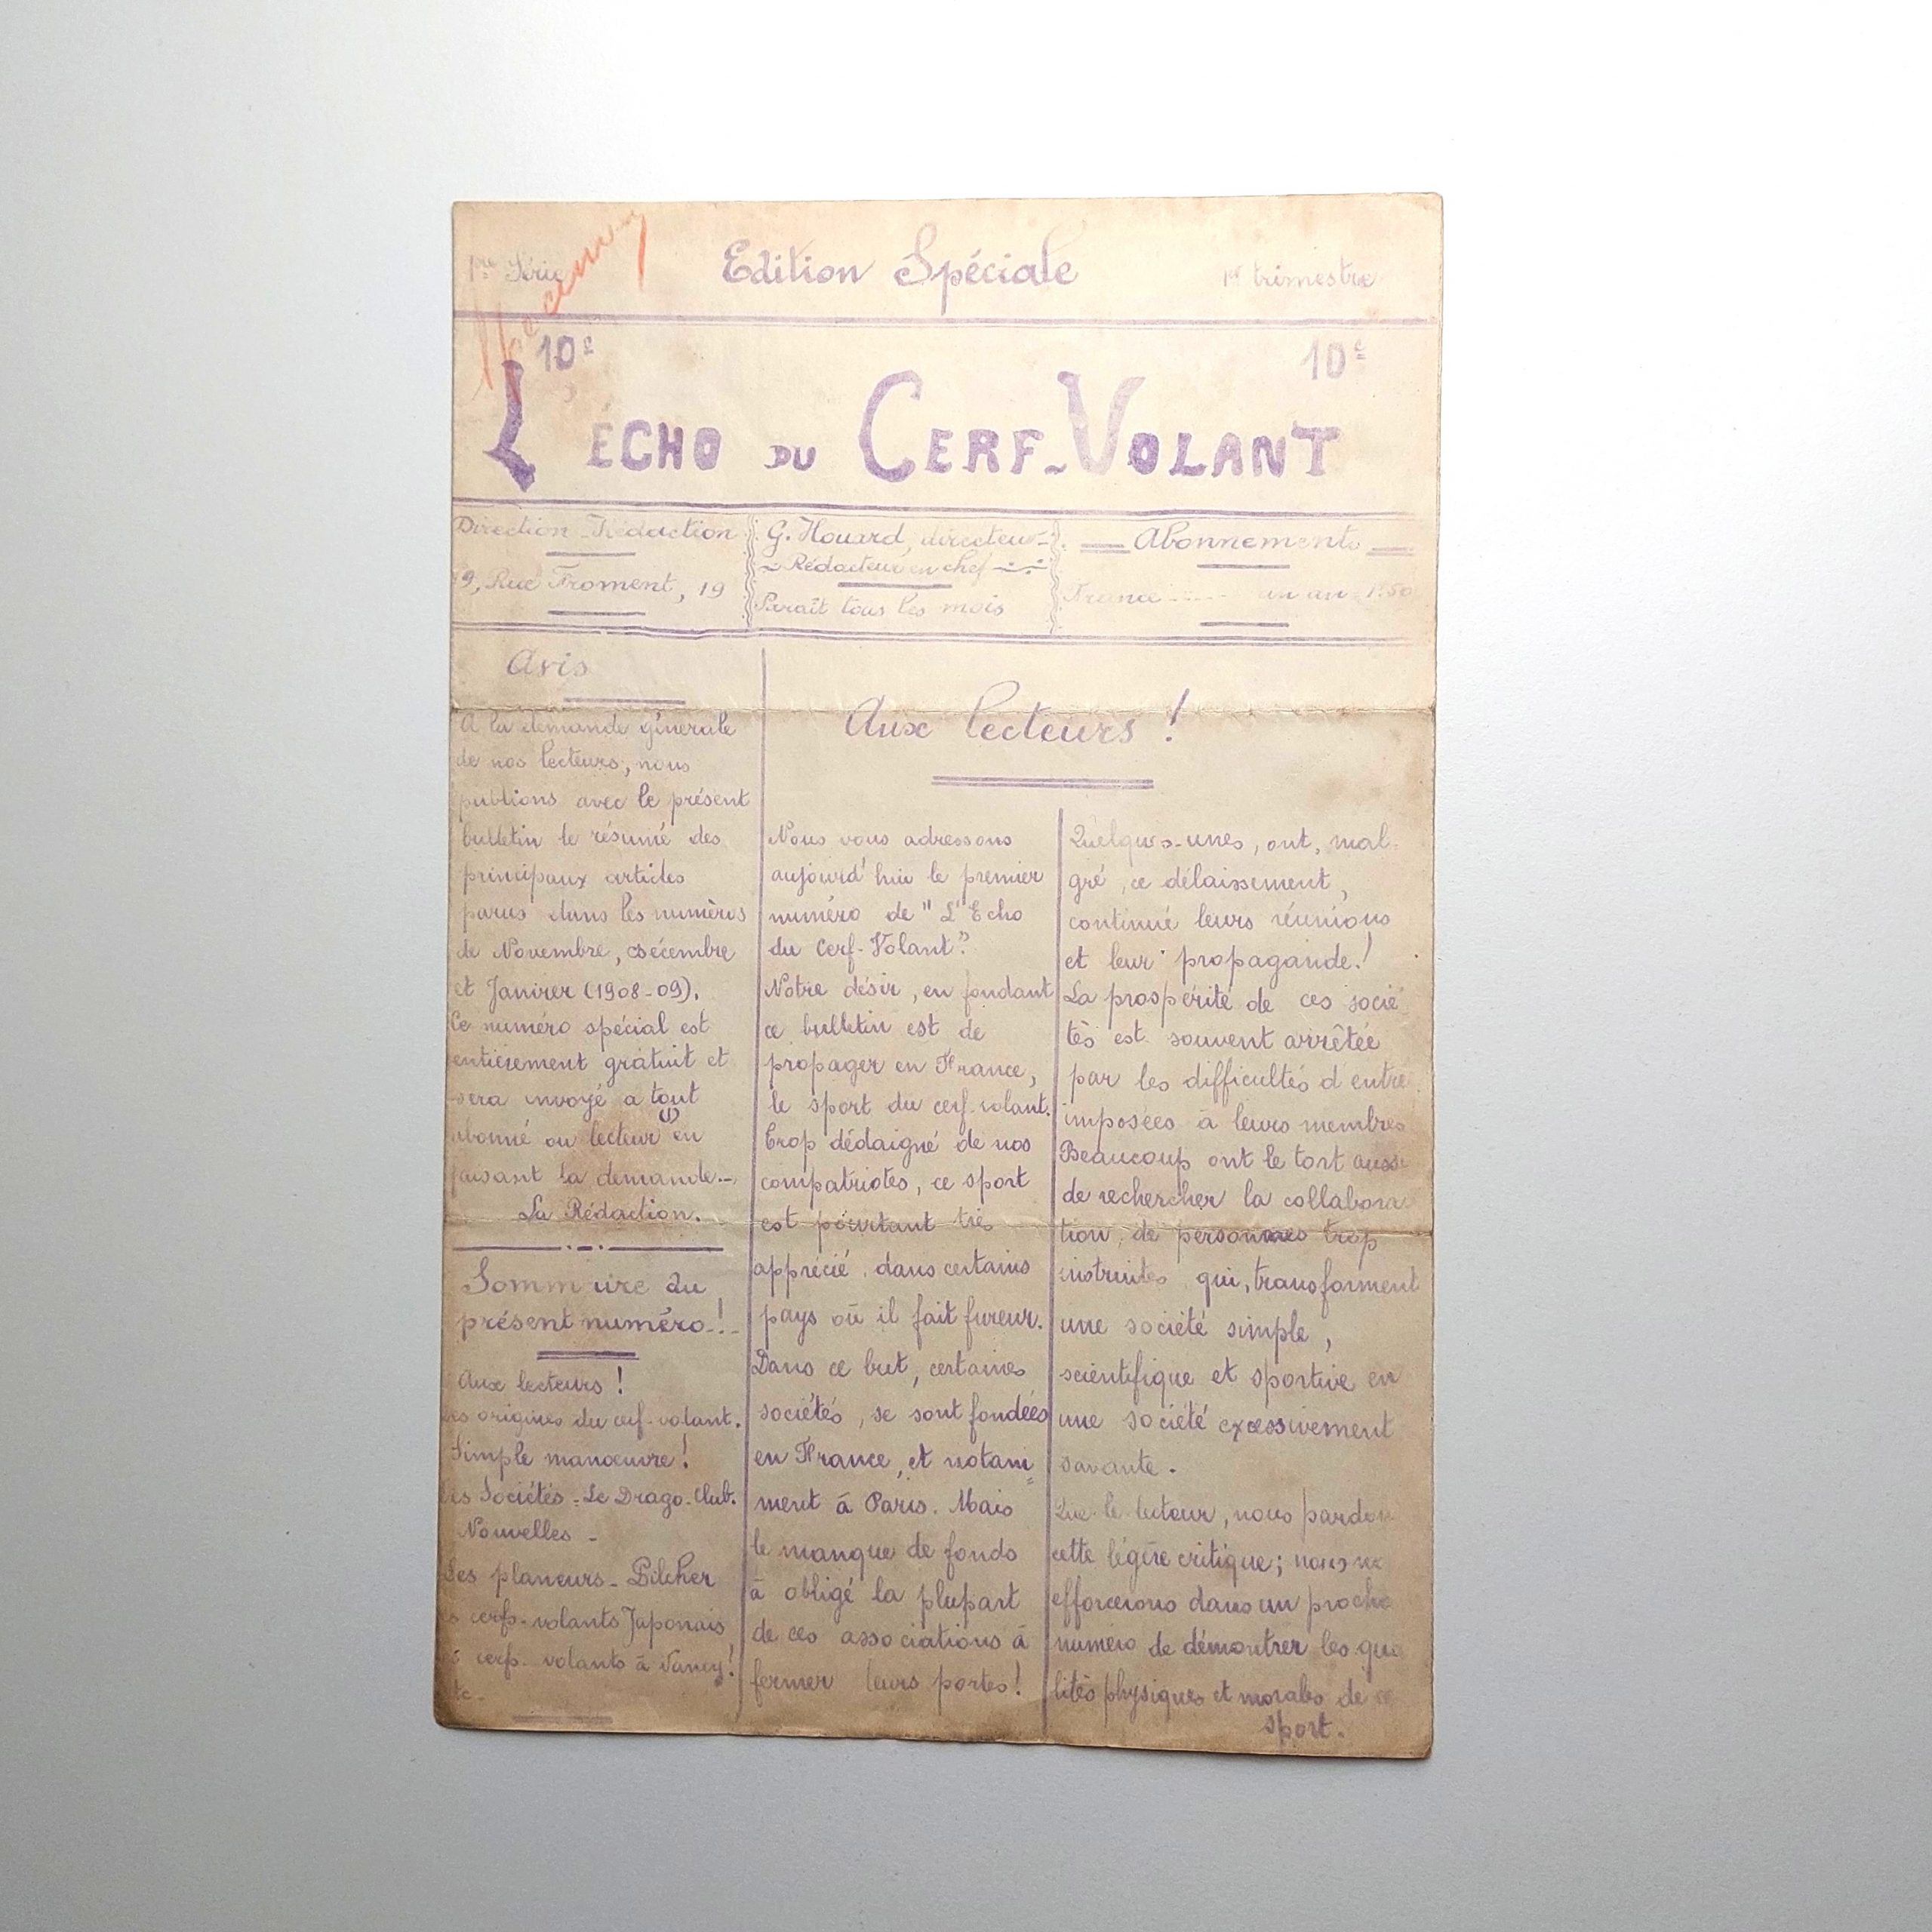 1re Série
Edition Spéciale
1er trimestre
10c
10c
L'ÉCHO DU CERF-VOLANT
Direction Rédaction
19, Rue Froment, 19
G. Houard, directeur
Rédacteur en chef
Paraît tous les mois
Abonnements
France ---- un an 1f.50
Avis
A la demande générale
de nos lecteurs, nous
publions avec le présent
bulletin le résumé des
principaux articles
parus dans les numéros
de Novembre, Décembre
et Janvier (1908-09).
Ce numéro spécial est
entièrement gratuit et
sera envoyé a tout
abonné ou lecteur (1) en
faisant la demande.-
La Rédaction.
Sommaire du
présent numéro-!-
Aux lecteurs !
Les origines du cerf-volant.
Simple manœuvre !
Les Sociétés - Le Drago-Club.
Nouvelles -
Les planeurs - Pilcher
cerfs-volants Japonais
cerfs-volants à Nancy !
etc-
Aux lecteurs !
Nous vous adressons
aujourd'hui le premier
numéro de "L'Echo
du Cerf-Volant".
Notre désir, en fondant
ce bulletin est de
propager en France,
le sport du cerf-volant.
Trop dédaigné de nos
compatriotes, ce sport
est pourtant très
apprécié, dans certains
pays où il fait fureur.
Dans ce but, certaines
sociétés, se sont fondées
en France, et notam=
ment à Paris. Mais
le manque de fonds
à obligé la plupart
de ces associations à
fermer leurs portes !
Quelques-unes, ont, mal=
gré, ce délaissement,
continué leurs réunions
et leur propagande !
La prospérité de ces socié
tés est souvent arrêtée
par les difficultés d'entre
imposées à leurs membres
Beaucoup ont le tort aussi
de rechercher la collabora
tion, de personnes trop
instruites qui, transforment
une société simple,
scientifique et sportive en
une société excessivement
savante.
Que le lecteur, nous pardon
cette légère critique; nous
efforcerons dans un procha
numéro de démontrer les qua
lités physiques et morales de
sport.